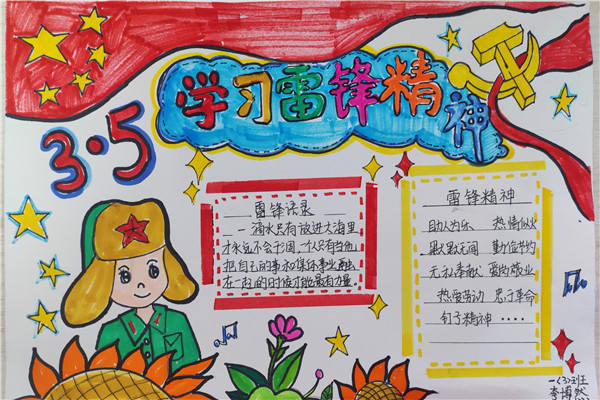 学习雷锋精神
3·5
雷锋语录
一滴水只有放进大海里
才永远不会干涸,一个人只有当他
把自己的事和集体事业融
在一起的时候才能最有力量.
雷锋精神
助人为乐 热情似火
默默无闻 勤俭节约
无私奉献 爱岗敬业
热爱劳动 忠于革命
钉子精神 ····
一(3)班
李博然